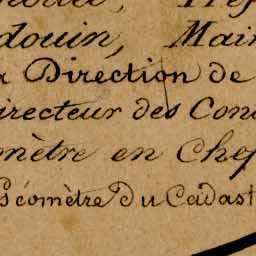 douin, Mair
Direction de
irecteur des Con
mètre en Chef
Géomètre Du Cadast